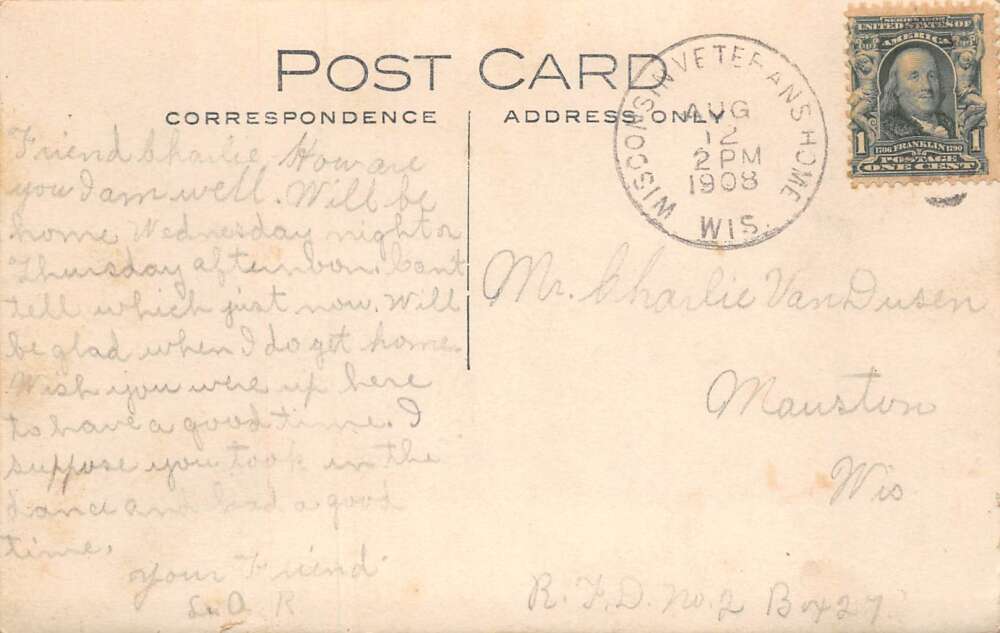 POST CARD
CORRESPONDENCE
ADDRESS ONLY
WISCONSIN VETERANS HOME
AUG
12
2 PM
1908
WIS.
SERIES 1902
UNITED STATES OF
AMERICA
1706 FRANKLIN 1790
POSTAGE
1 ONE CENT 1
Friend Charlie, How are
you I am well. Will be
home Wednesday night or
Thursday afternoon. Cant
tell which just now. Will
be glad when I do get home.
Wish you were up here
to have a good time. I
suppose you took in the
dance and had a good
time.
your Friend
L. O. R
Mr. Charlie VanDusen
Mauston
Wis
R. F. D. No. 2 Box 27